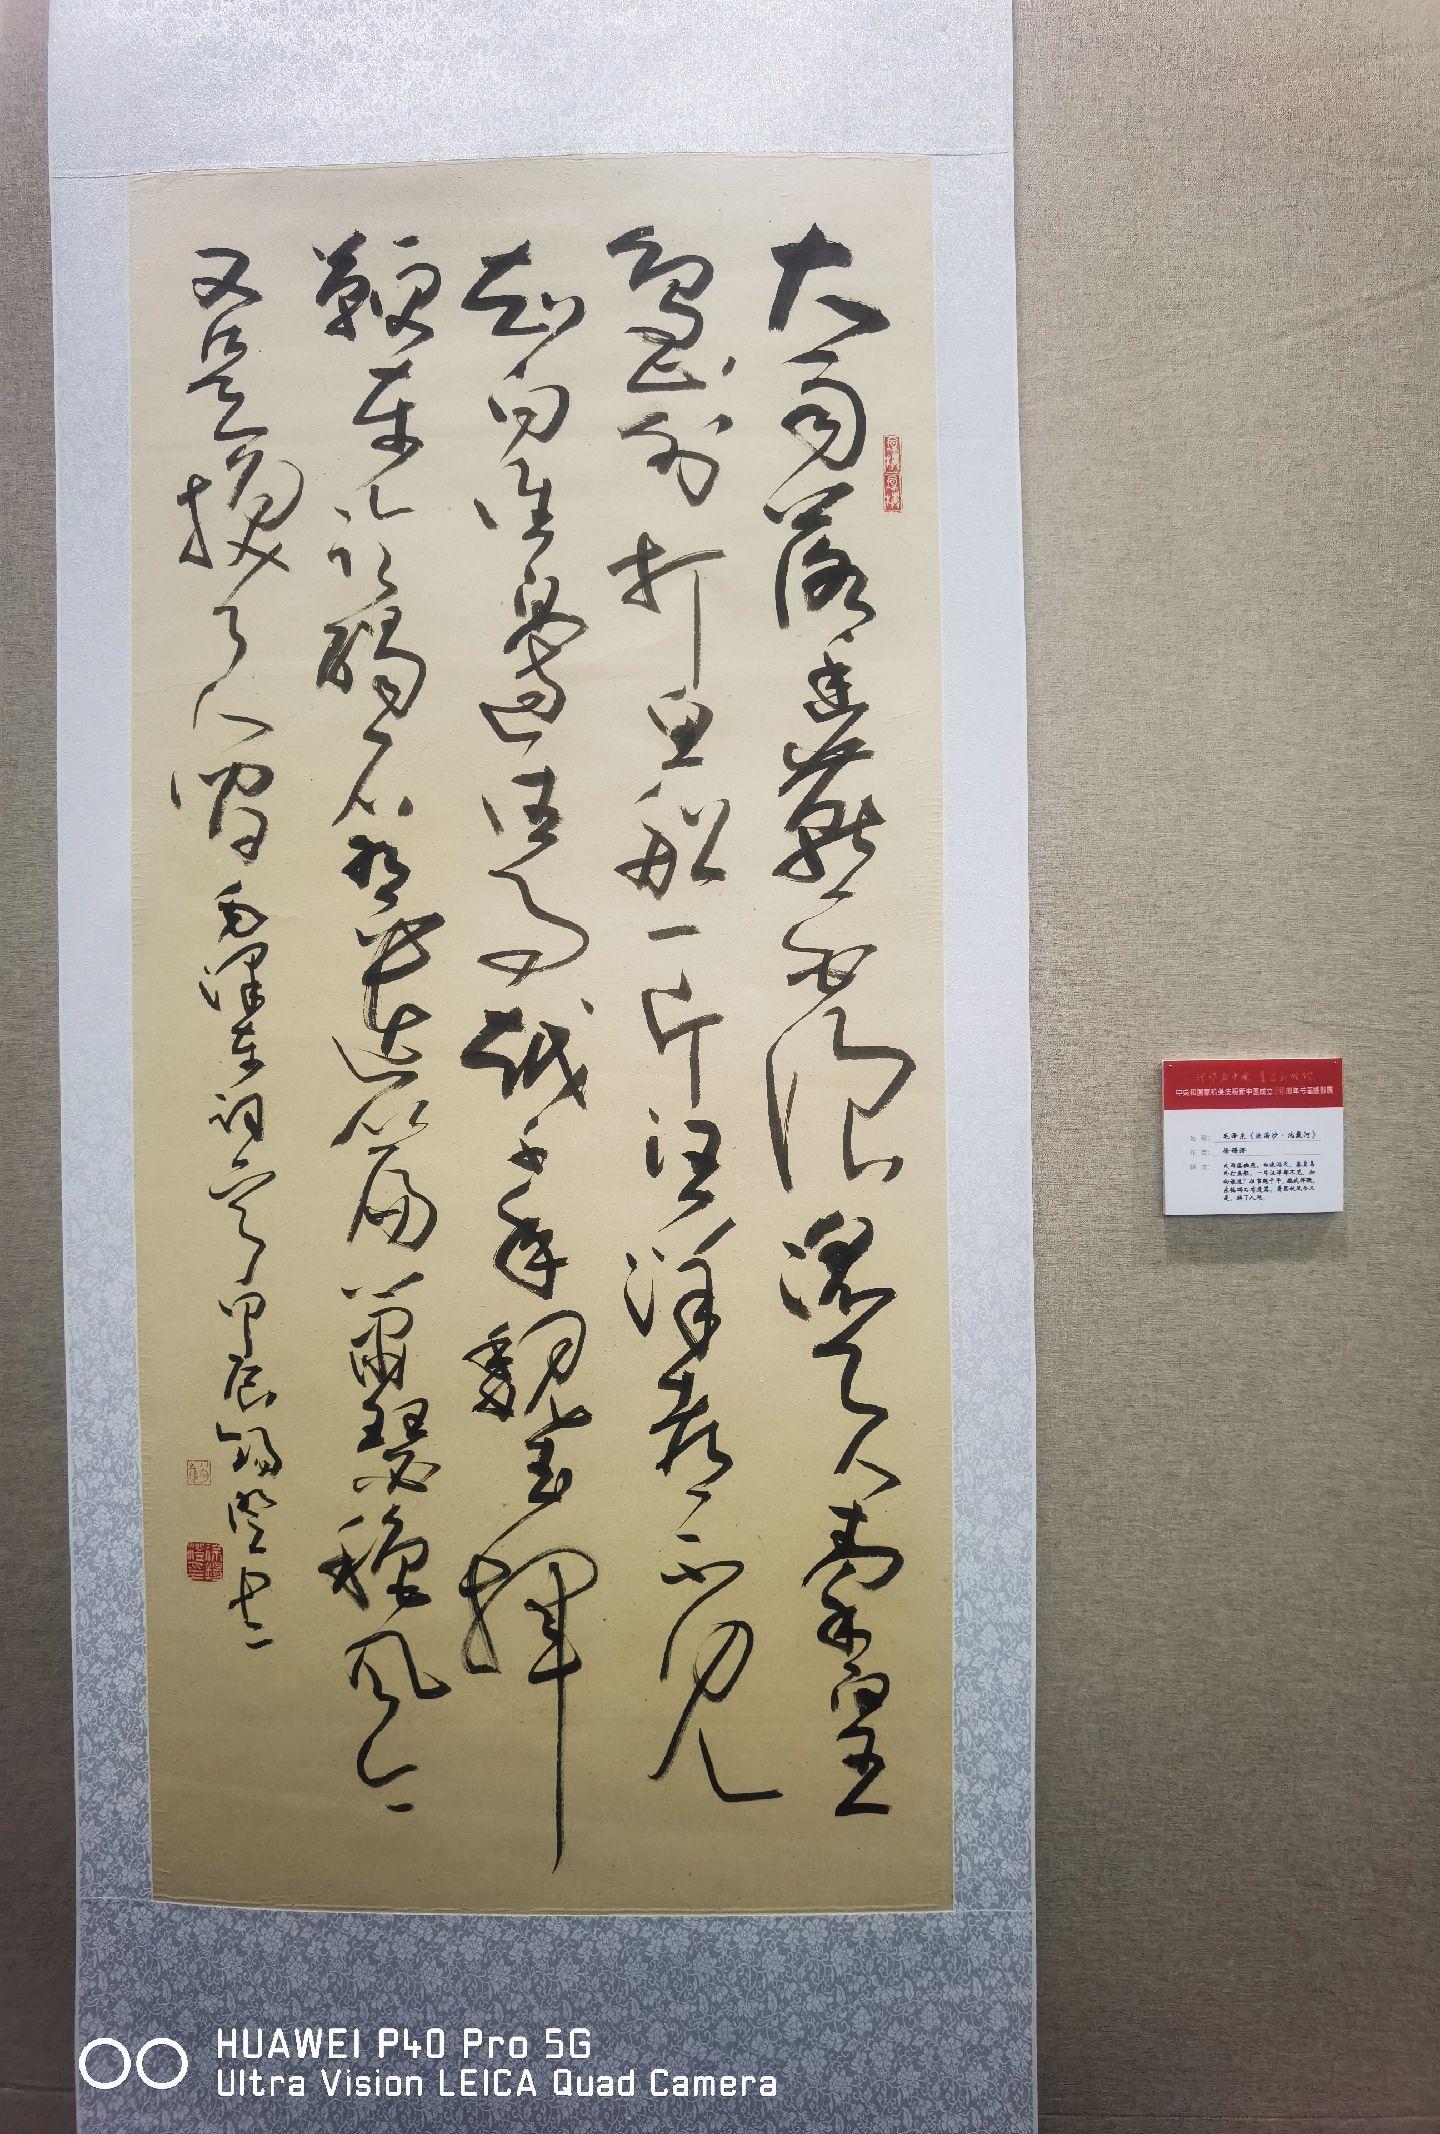 大雨落幽燕白浪滔天秦皇
島外打魚船一片汪洋都不見
知向誰邊往事越千年魏武揮
鞭東臨碣石有遺篇蕭瑟秋風今
又是換了人間 毛澤東词 甲辰錫澄
中央和国家机关庆祝新中国成立75周年书画摄影展
名称: 毛泽东《浪淘沙·北戴河》
作者: 徐锡澄
释文: 大雨落幽燕，白浪滔天，秦皇岛
外打鱼船。一片汪洋都不见，知
向谁边？往事越千年，魏武挥鞭，
东临碣石有遗篇。萧瑟秋风今又
是，换了人间。
HUAWEI P40 Pro 5G
Ultra Vision LEICA Quad Camera